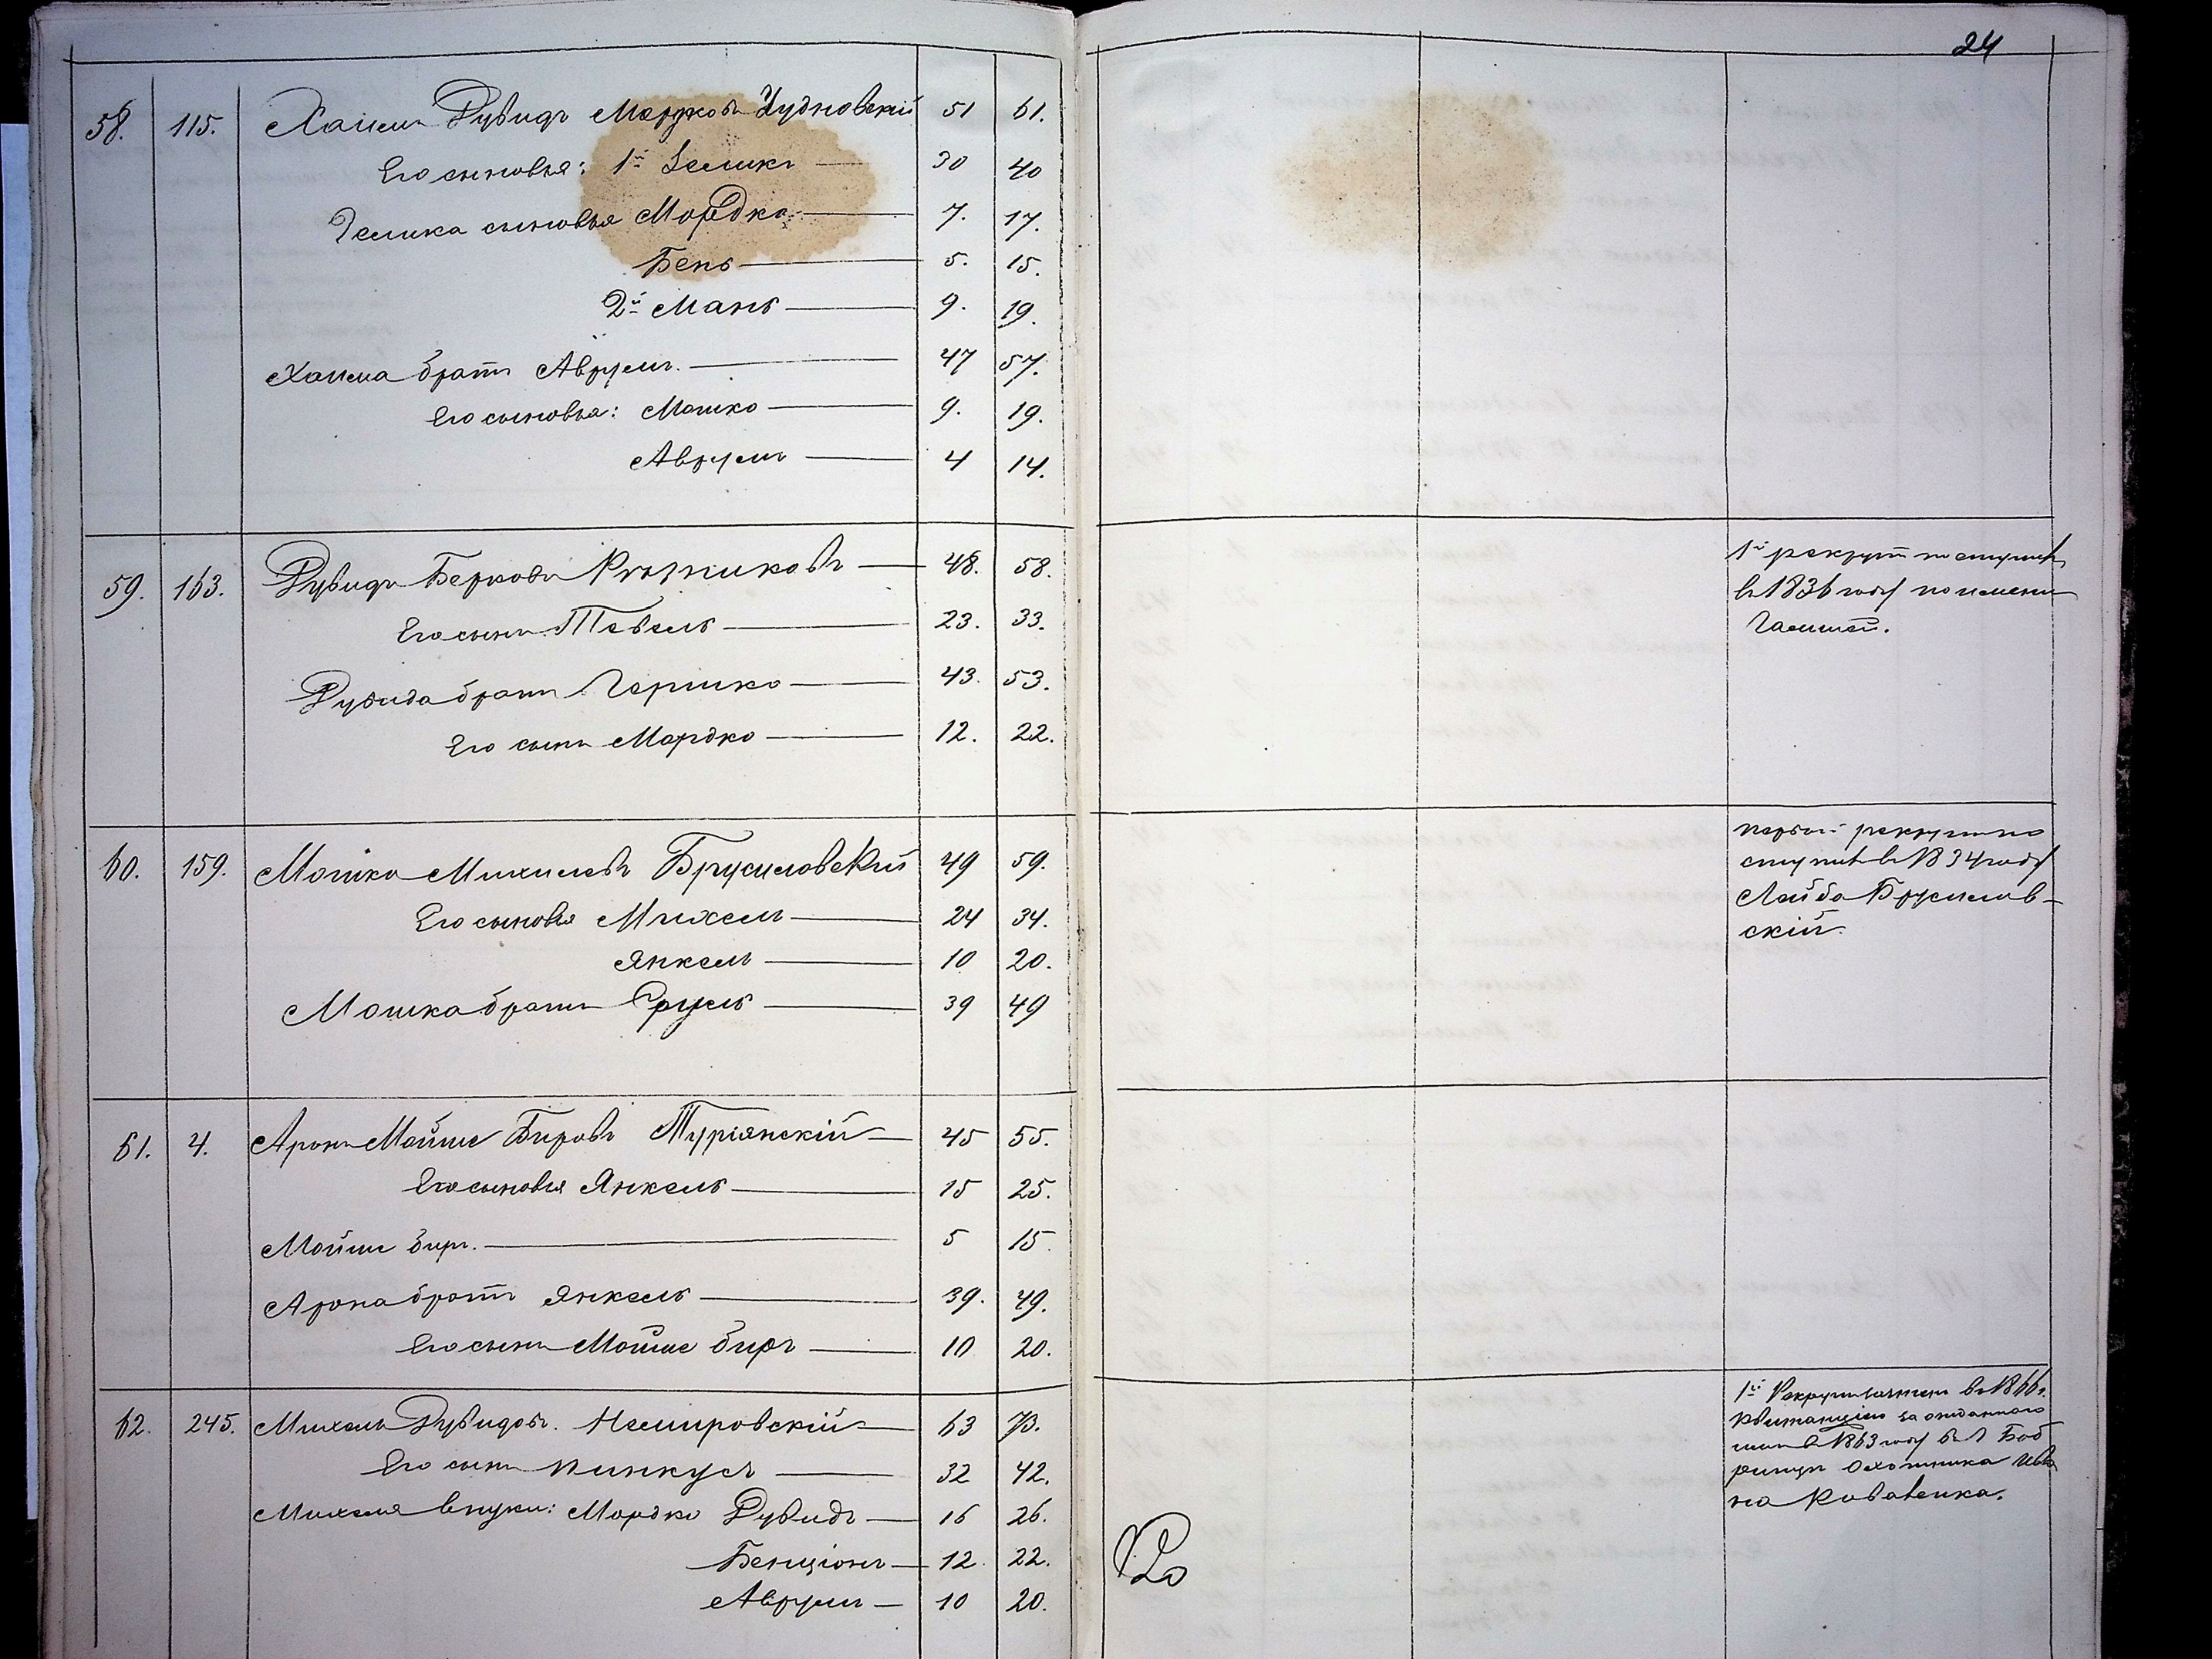 24
58. 115. Хаимъ Рувидъ Мордковъ Чудновскій 51 61.
Его сыновья: 1й Зеликъ 30 40
Зелика сыновья Мордко 7. 17.
Бень 5. 15.
2й Мань 9. 19.
Хаима братъ Аврумъ. 47 57.
Его сыновья: Мошко 9. 19.
Аврумъ 4 14.
59. 163. Рувидъ Берковъ Рѣзниковъ 48. 58.
Его сынъ Тевель 23. 33.
Рувида братъ Гершко 43. 53.
Его сынъ Мордко 12. 22.
1й рекрутъ поступилъ
въ 1836 году по имени
60. 159. Мошко Михилевъ Брусиловскій 49 59.
Его сыновья Михель 24 34.
Янкель 10 20.
Мошка братъ Сруль 39 49
первый рекрутъ по
ступилъ въ 1834 году
Лейба Брусилов-
скій.
61. 4. Аронъ Мойше Бировъ Туріянскій 45 55.
Его сыновья Янкель 15 25.
Мойше биръ. 5 15.
Арона братъ Янкель 39. 49.
Его сынъ Мойше биръ 10 20.
62. 245. Михель Рувидовъ. Немировскій 63 73.
Его сынъ Пинкусъ 32 42.
Михеля внуки: Мордко Рувидъ 16 26.
Бенціонъ 12. 22.
Аврумъ 10 20.
1й Рекрутъ зачтенъ въ 1866 г.
квитанціею за отданнаго
имъ въ 1863 году въ г. Боб
ринцъ Охотника Ива
на Коваленка.